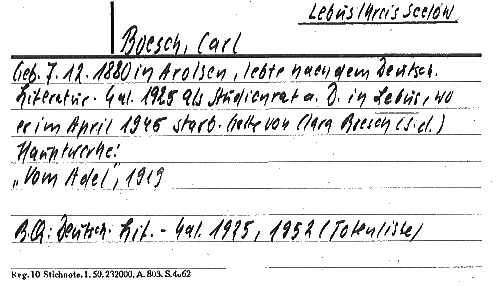 Lebus/Kreis Seelow
Boesch, Carl
Geb. 7.12.1880 in Arolsen, lebte nach dem Deutsch.
Literatur-Kal. 1925 als Studienrat a. D. in Lebus, wo
er im April 1945 starb. Gatte von Clara Boesch (s.d.)
Hauptwerke:
"Vom Adel", 1919
B.Q: Deutsch. Lit.-Kal. 1925, 1952 (Totenliste)
Reg. 10 Stichnote. 1. 50. 232000. A. 803. S. 4062